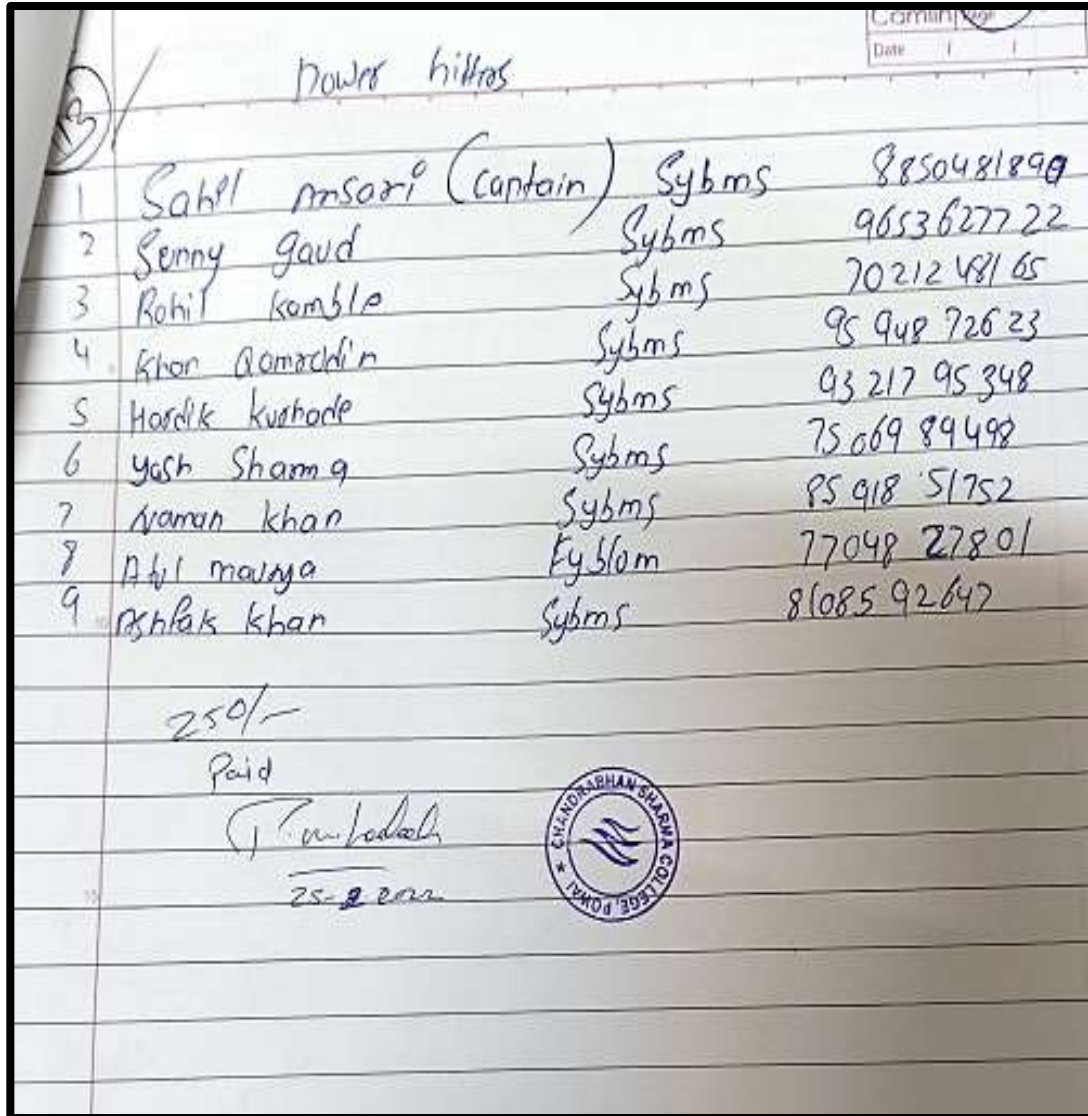 Camlin Page
Date / /
13
Power hitters
1 Sahil Ansari (Captain) Sybms 8850481890
2 Sunny gaud Sybms 9653627722
3 Rohit kamble Sybms 7021248165
4 Khan Qamruddin Sybms 95 948 72623
5 Hardik Sybms 93 217 95 348
6 Yash Sharma Sybms 75 069 89498
7 Naman khan Sybms 85 918 51752
8 Atul maurya Fybcom 77048 27801
9 Ashfak khan Sybms 81085 92647
250/-
Paid
25-2-2022
CHANDRABHAN SHARMA COLLEGE, POWAI